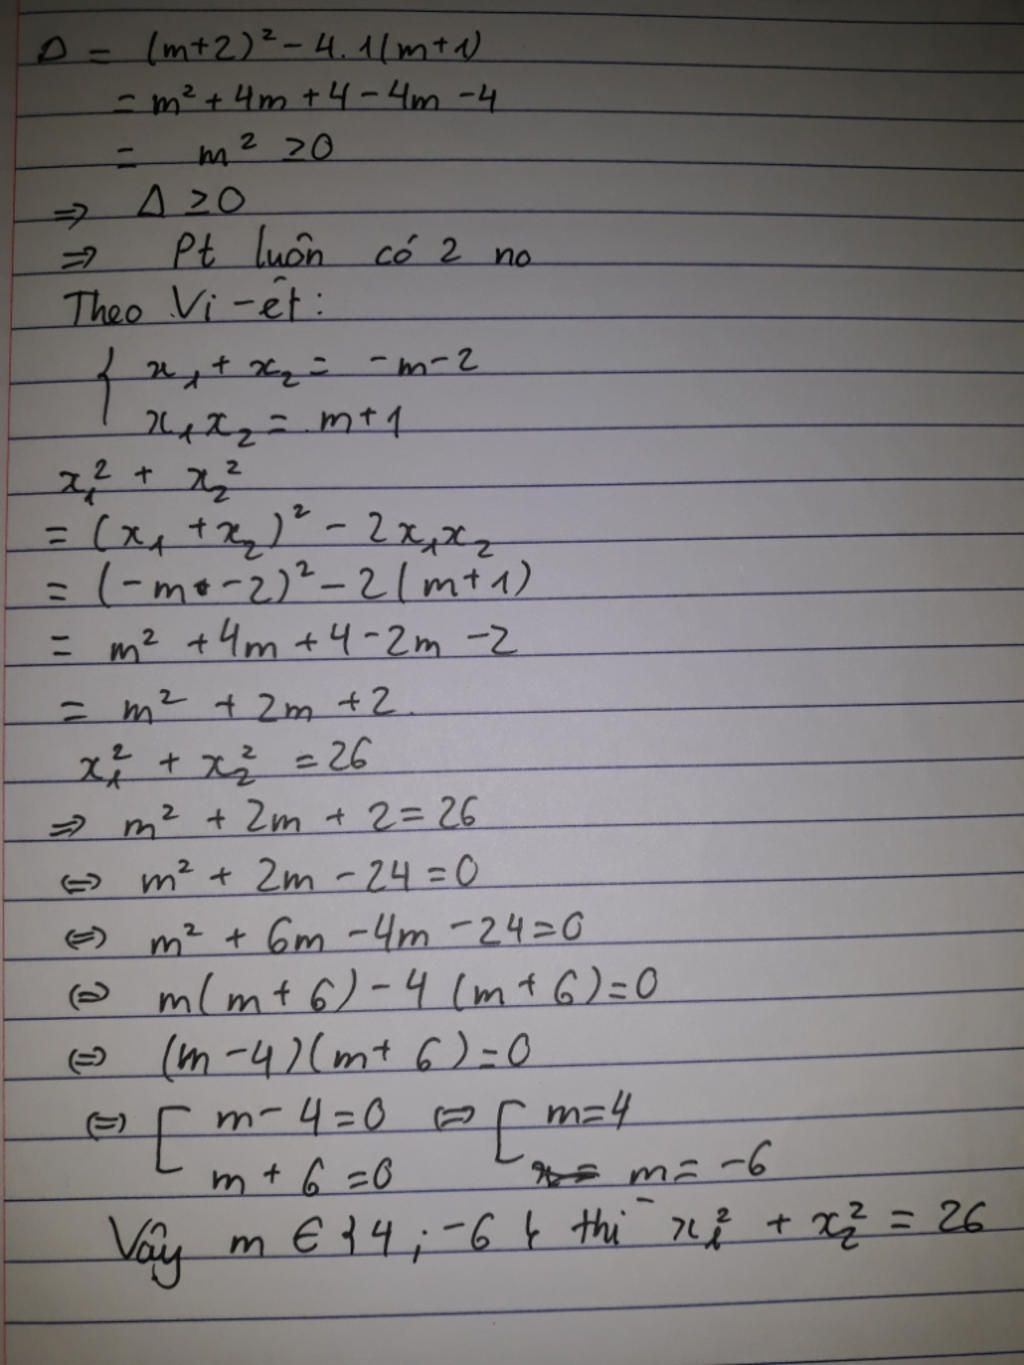 Δ = (m+2)² - 4.1(m+1)
= m² + 4m + 4 - 4m - 4
= m² ≥0
⇒ Δ ≥0
⇒ Pt luôn có 2 no
Theo Vi-ét:
{ x₁ + x₂ = -m-2
x₁x₂ = m+1
x₁² + x₂²
= (x₁ + x₂)² - 2x₁x₂
= (-m - 2)² - 2(m+1)
= m² + 4m + 4 - 2m - 2
= m² + 2m + 2
x₁² + x₂² = 26
⇒ m² + 2m + 2 = 26
⇔ m² + 2m - 24 = 0
⇔ m² + 6m - 4m - 24 = 0
⇔ m(m+6) - 4(m+6) = 0
⇔ (m-4)(m+6) = 0
⇔ [ m-4=0 ⇔ [ m=4
m+6=0 m=-6
Vậy m ∈ {4; -6} thì x₁² + x₂² = 26